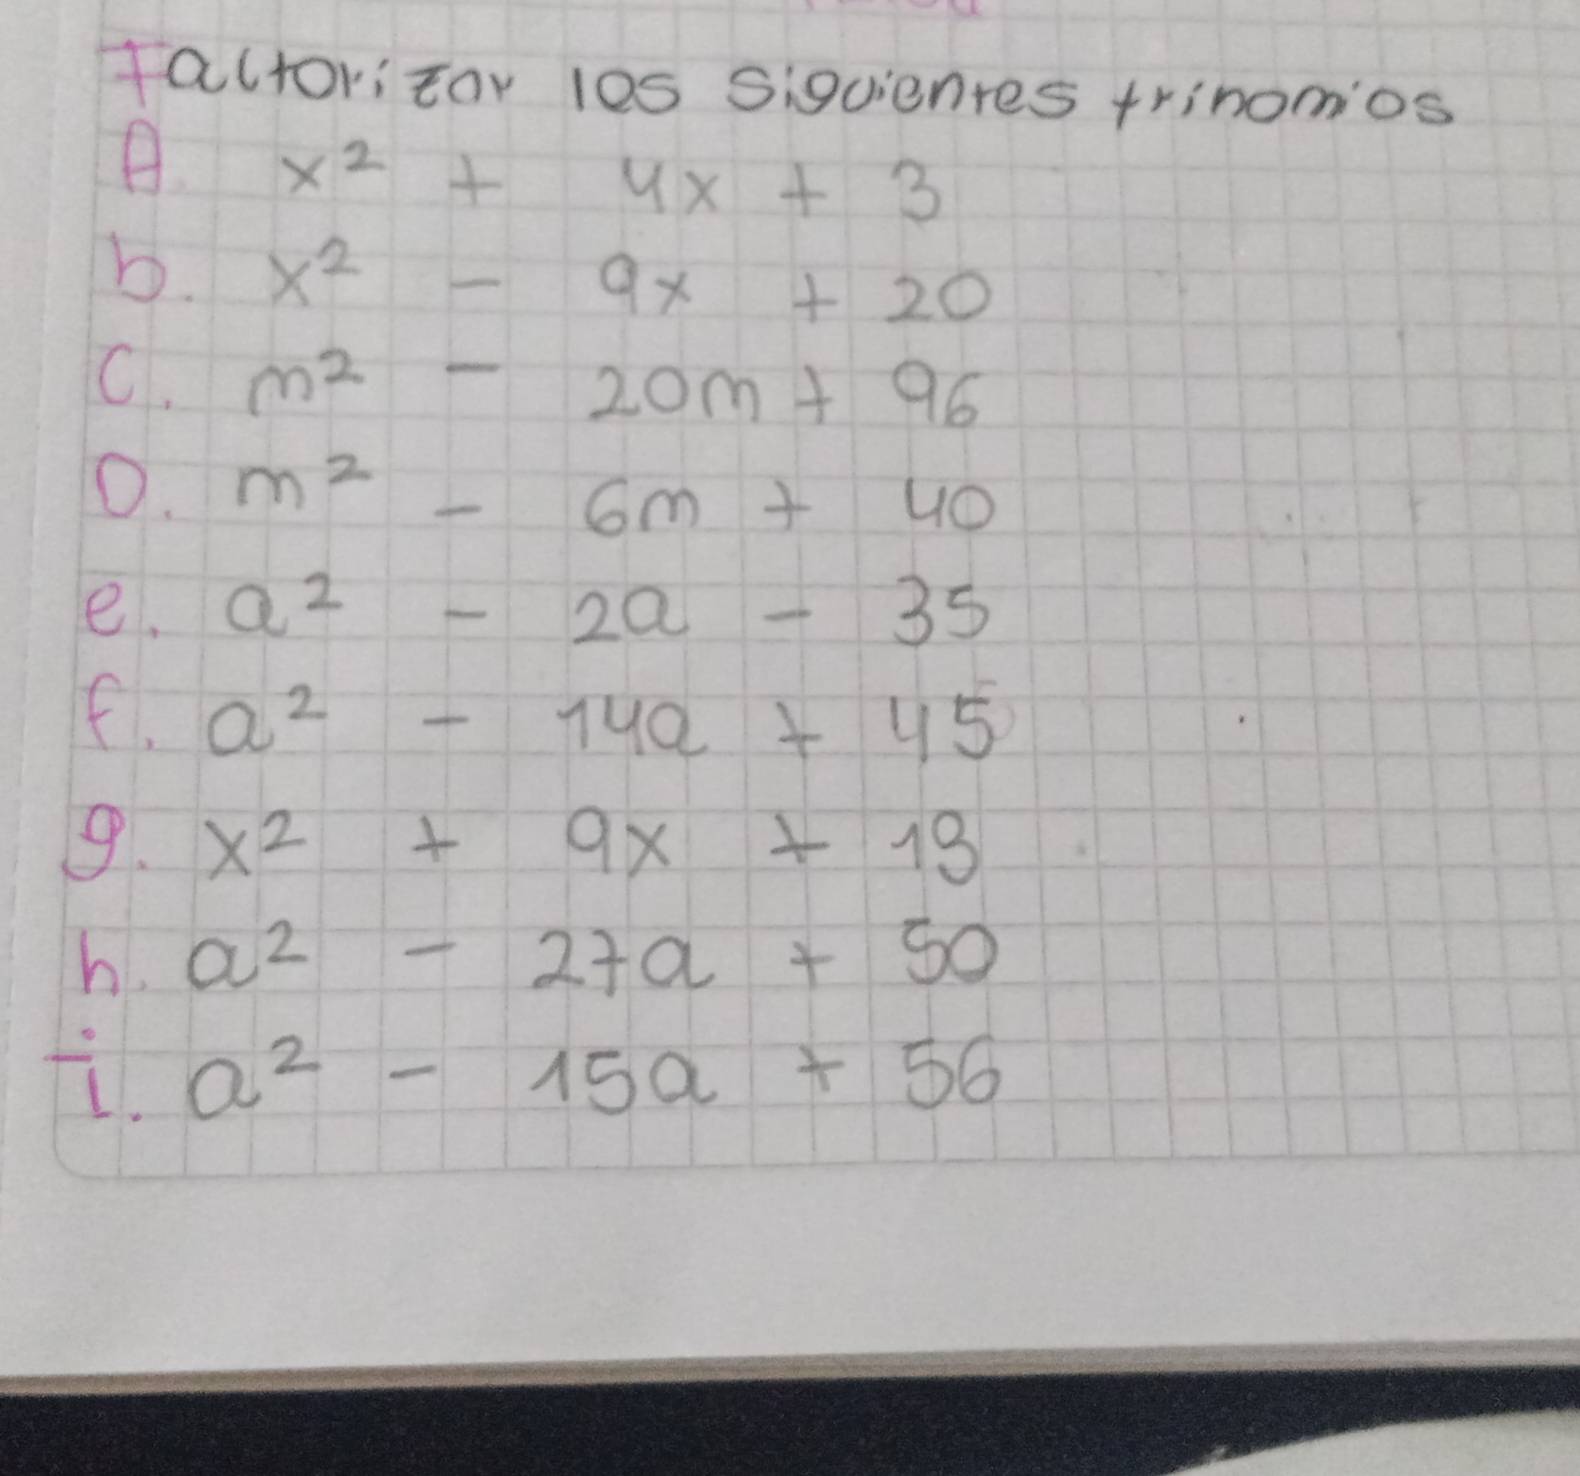 Factorizar los siguientes trinomios
A. x² + 4x + 3
b. x² - 9x + 20
C. m² - 20m + 96
D. m² - 6m + 40
e. a² - 2a - 35
f. a² - 14a + 45
g. x² + 9x + 18
h. a² - 27a + 50
i. a² - 15a + 56